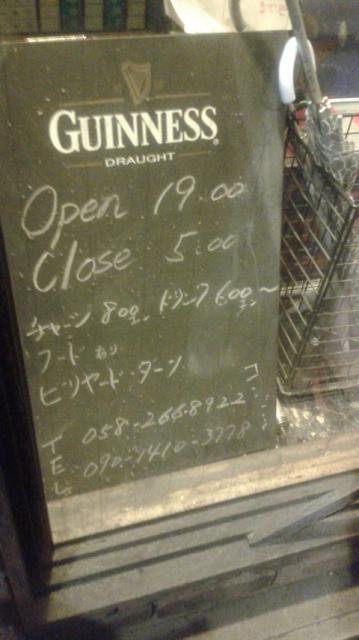 GUINNESS
DRAUGHT
Open 19:00
Close 5:00
チャージ 800エン ドリンク 600エン〜
フード あり
ビリヤード・ダーツ
TEL 058-266-8922
090-7410-3778